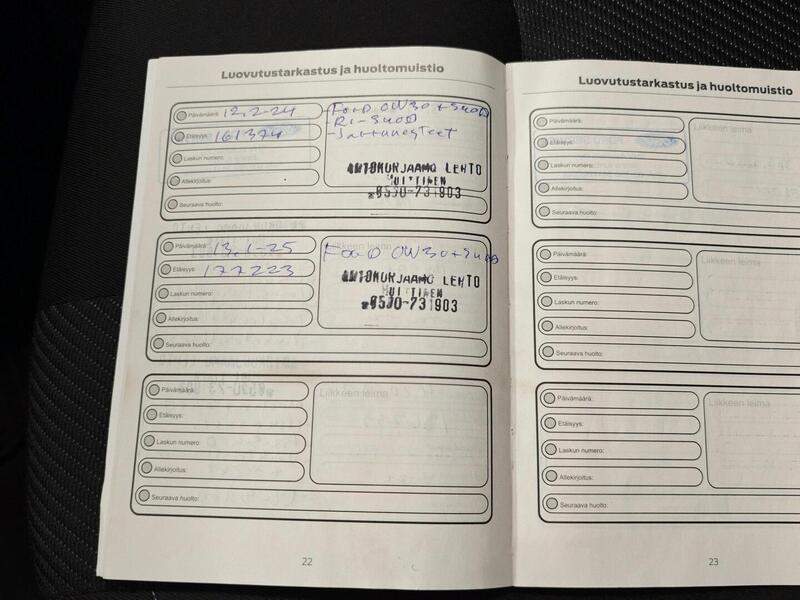 Luovutustarkastus ja huoltomuistio
Päivämäärä: 12.2-24
Etäisyys: 161374
Laskun numero:
Allekirjoitus:
Seuraava huolto:
-Ford 0W30 + suod
-Ri-suod
-Jarrunesteet
AUTOKORJAAMO LEHTO
HUITTINEN
0500-731903
Päivämäärä: 13.1-25
Etäisyys: 177223
Laskun numero:
Allekirjoitus:
Seuraava huolto:
Liikkeen leima
Ford 0W30 + suod
AUTOKORJAAMO LEHTO
HUITTINEN
0500-731903
Päivämäärä:
Etäisyys:
Laskun numero:
Allekirjoitus:
Seuraava huolto:
Liikkeen leima
22
Luovutustarkastus ja huoltomuistio
Päivämäärä:
Etäisyys:
Laskun numero:
Allekirjoitus:
Seuraava huolto:
Liikkeen leima
Päivämäärä:
Etäisyys:
Laskun numero:
Allekirjoitus:
Seuraava huolto:
Liikkeen leima
Päivämäärä:
Etäisyys:
Laskun numero:
Allekirjoitus:
Seuraava huolto:
Liikkeen leima
23